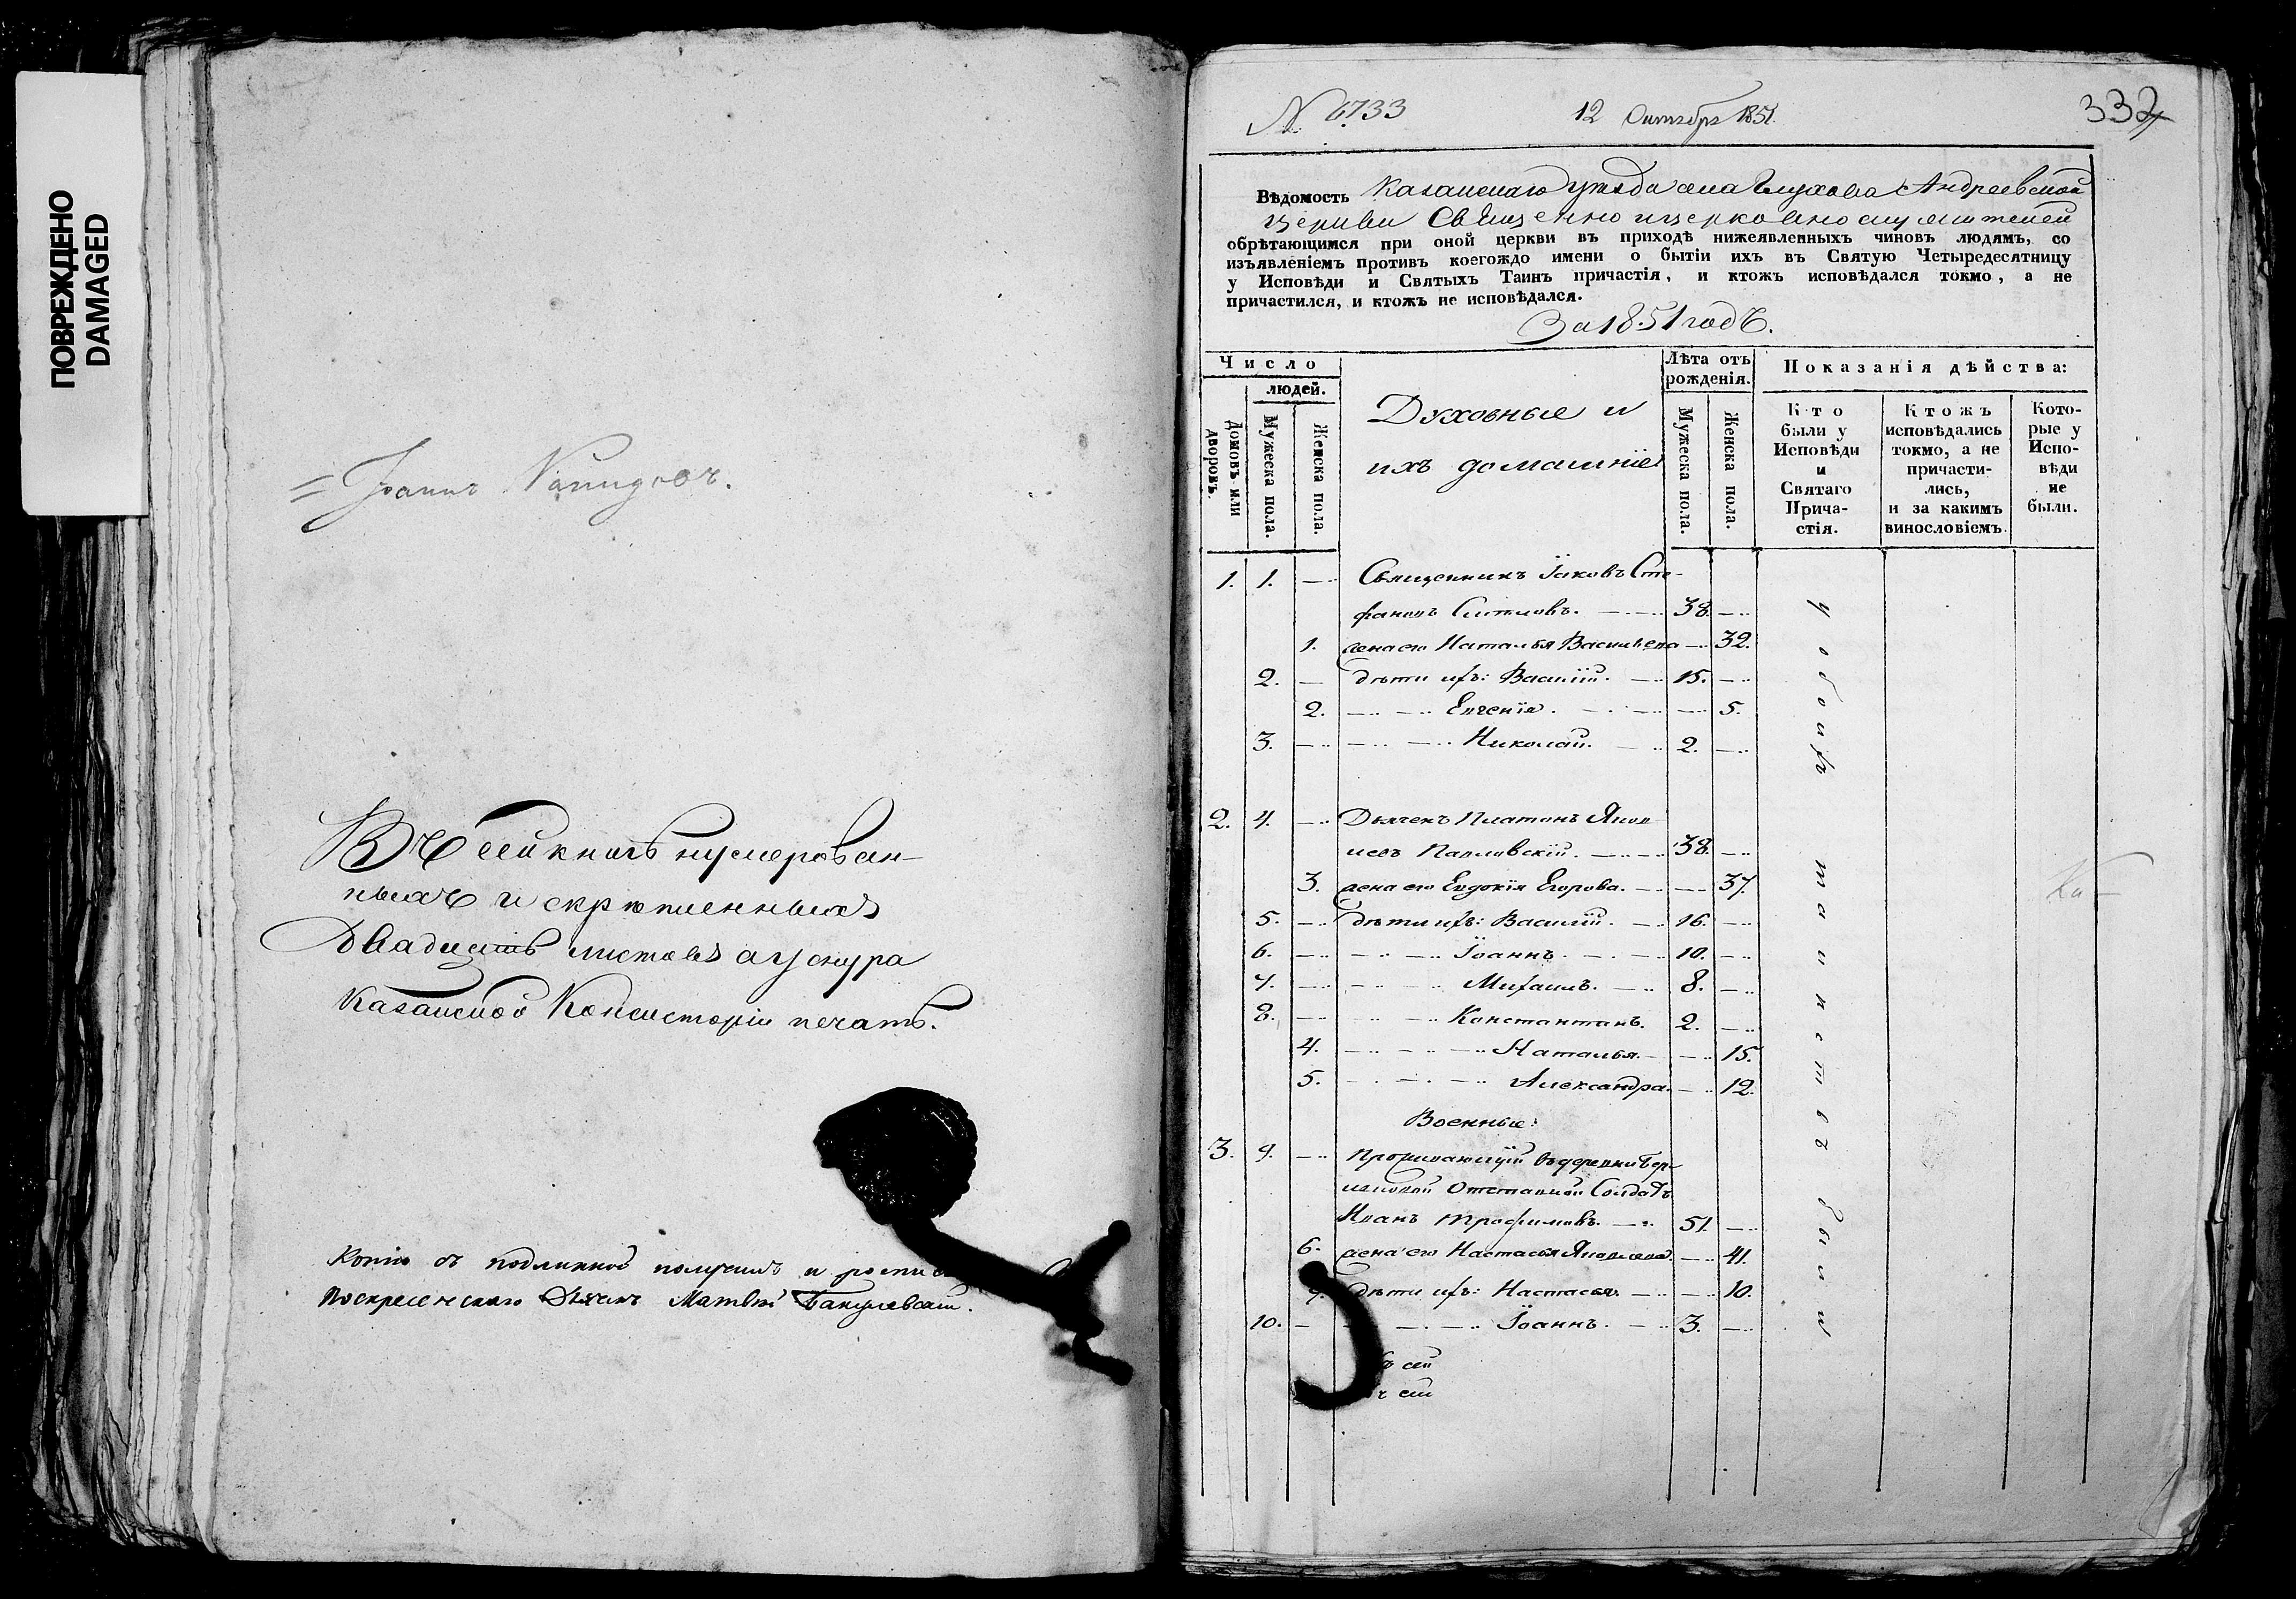 ПОВРЕЖДЕНО
DAMAGED
Въ сей книгѣ нумерован-
ныхъ и скрѣпленныхъ
Двадцать листовъ а у снура
Казанской Консисторіи печать.
Копію съ подлинной получилъ и росписался
Воскресенскаго Дьячекъ Матвѣй
№ 6733
12 Октября 1851.
332
Вѣдомость Казанскаго уѣзда села Глухова Андреевской
Церкви Священно и церковно служителей
обрѣтающимся при оной церкви въ приходѣ нижеявленныхъ чиновъ людямъ, со
изъявленіемъ противъ коегождо имени о бытіи ихъ въ Святую Четыредесятницу
у Исповѣди и Святыхъ Таинъ причастія, и ктожъ исповѣдался токмо, а не
причастился, и ктожъ не исповѣдался.
За 1851 годъ.
Число
людей.
Домовъ или дворовъ.
Мужеска пола.
Женска пола.
Духовные и
ихъ домашніе
Лѣта отъ
рожденія.
Мужеска пола.
Женска пола.
Показанія дѣйства:
Кто
были у
Исповѣди
и
Святаго
Прича-
стія.
Ктожъ
исповѣдались
токмо, а не
причасти-
лись,
и за какимъ
винословіемъ.
Кото-
рые у
Испо-
вѣди
не
были.
1. 1. — Священникъ Іаковъ Сте-
фановъ 38. —
1. жена его Наталья Васильева — 32.
2. — дѣти ихъ: Василій. — 15. —
2. — Евгенія. — — 5.
3. — — Николай. — 2. —
2. 4. — Дьячекъ Платонъ Яков
левъ Павловскій. — 38. —
3. жена его Евдокія Егорова. — — 37.
5. — дѣти ихъ: Василій. — 16. —
6. — — Іоаннъ. — 10. —
7. — — Михаилъ. — 8. —
8. — — Константинъ. 2. —
4. — — Наталья. — — 15.
5. — — Александра. — 12.
Военные:
3. 9. — Проживающій въ деревни
Отставной Солдатъ
Иванъ Трофимовъ. — 51. —
6. жена его Настасья Яковлева. — 41.
7. дѣти ихъ: Настасья. — — 10.
10. — — Іоаннъ. — 3. —
сей
сей
у обоихъ таинствъ были